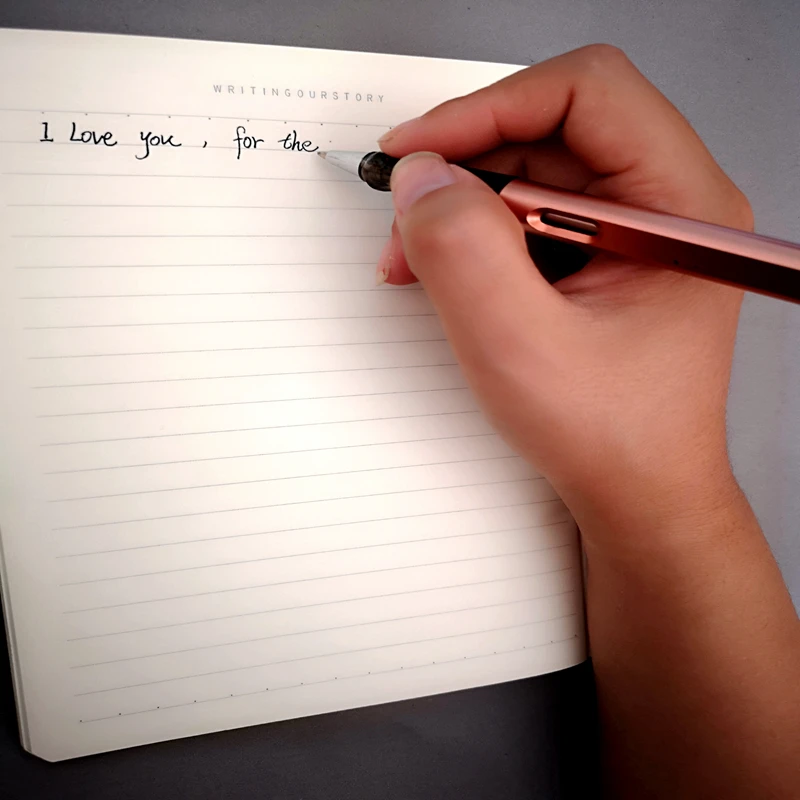 WRITINGOURSTORY
I Love you , for the